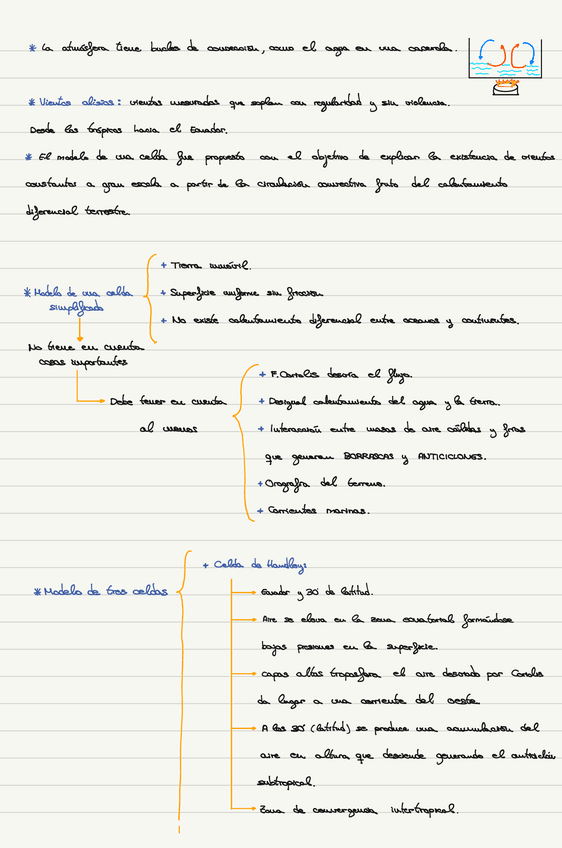 * La atmósfera tiene bucles de convección, como el agua en una cacerola.
* Vientos alisios: vientos mesurados que soplan con regularidad y sin violencia.
Desde los trópicos hacia el Ecuador.
* El modelo de una celda fue propuesto con el objetivo de explicar la existencia de vientos
constantes a gran escala a partir de la circulación convectiva fruto del calentamiento
diferencial terrestre.
+ Tierra inmóvil.
* Modelo de una celda
simplificado
+ Superficie uniforme sin fricción
+ No existe calentamiento diferencial entre oceanos y continentes.
No tiene en cuenta
cosas importantes
+ F. Coriolis desvía el flujo.
Debe tener en cuenta
al menos
+ Desigual calentamiento del agua y la tierra.
+ Interacción entre masas de aire cálidas y frías
que generan BORRASCAS y ANTICICLONES.
+ Orografía del terreno.
+ Corrientes marinas.
+ Celda de Handley:
* Modelo de tres celdas
Ecuador y 30° de latitud.
Aire se eleva en la zona ecuatorial formándose
bajas presiones en la superficie.
capas altas troposfera el aire desviado por Coriolis
da lugar a una corriente del oeste
A los 30° (latitud) se produce una acumulación del
aire en altura que desciende generando el anticiclón
subtropical.
Zona de convergencia intertropical.